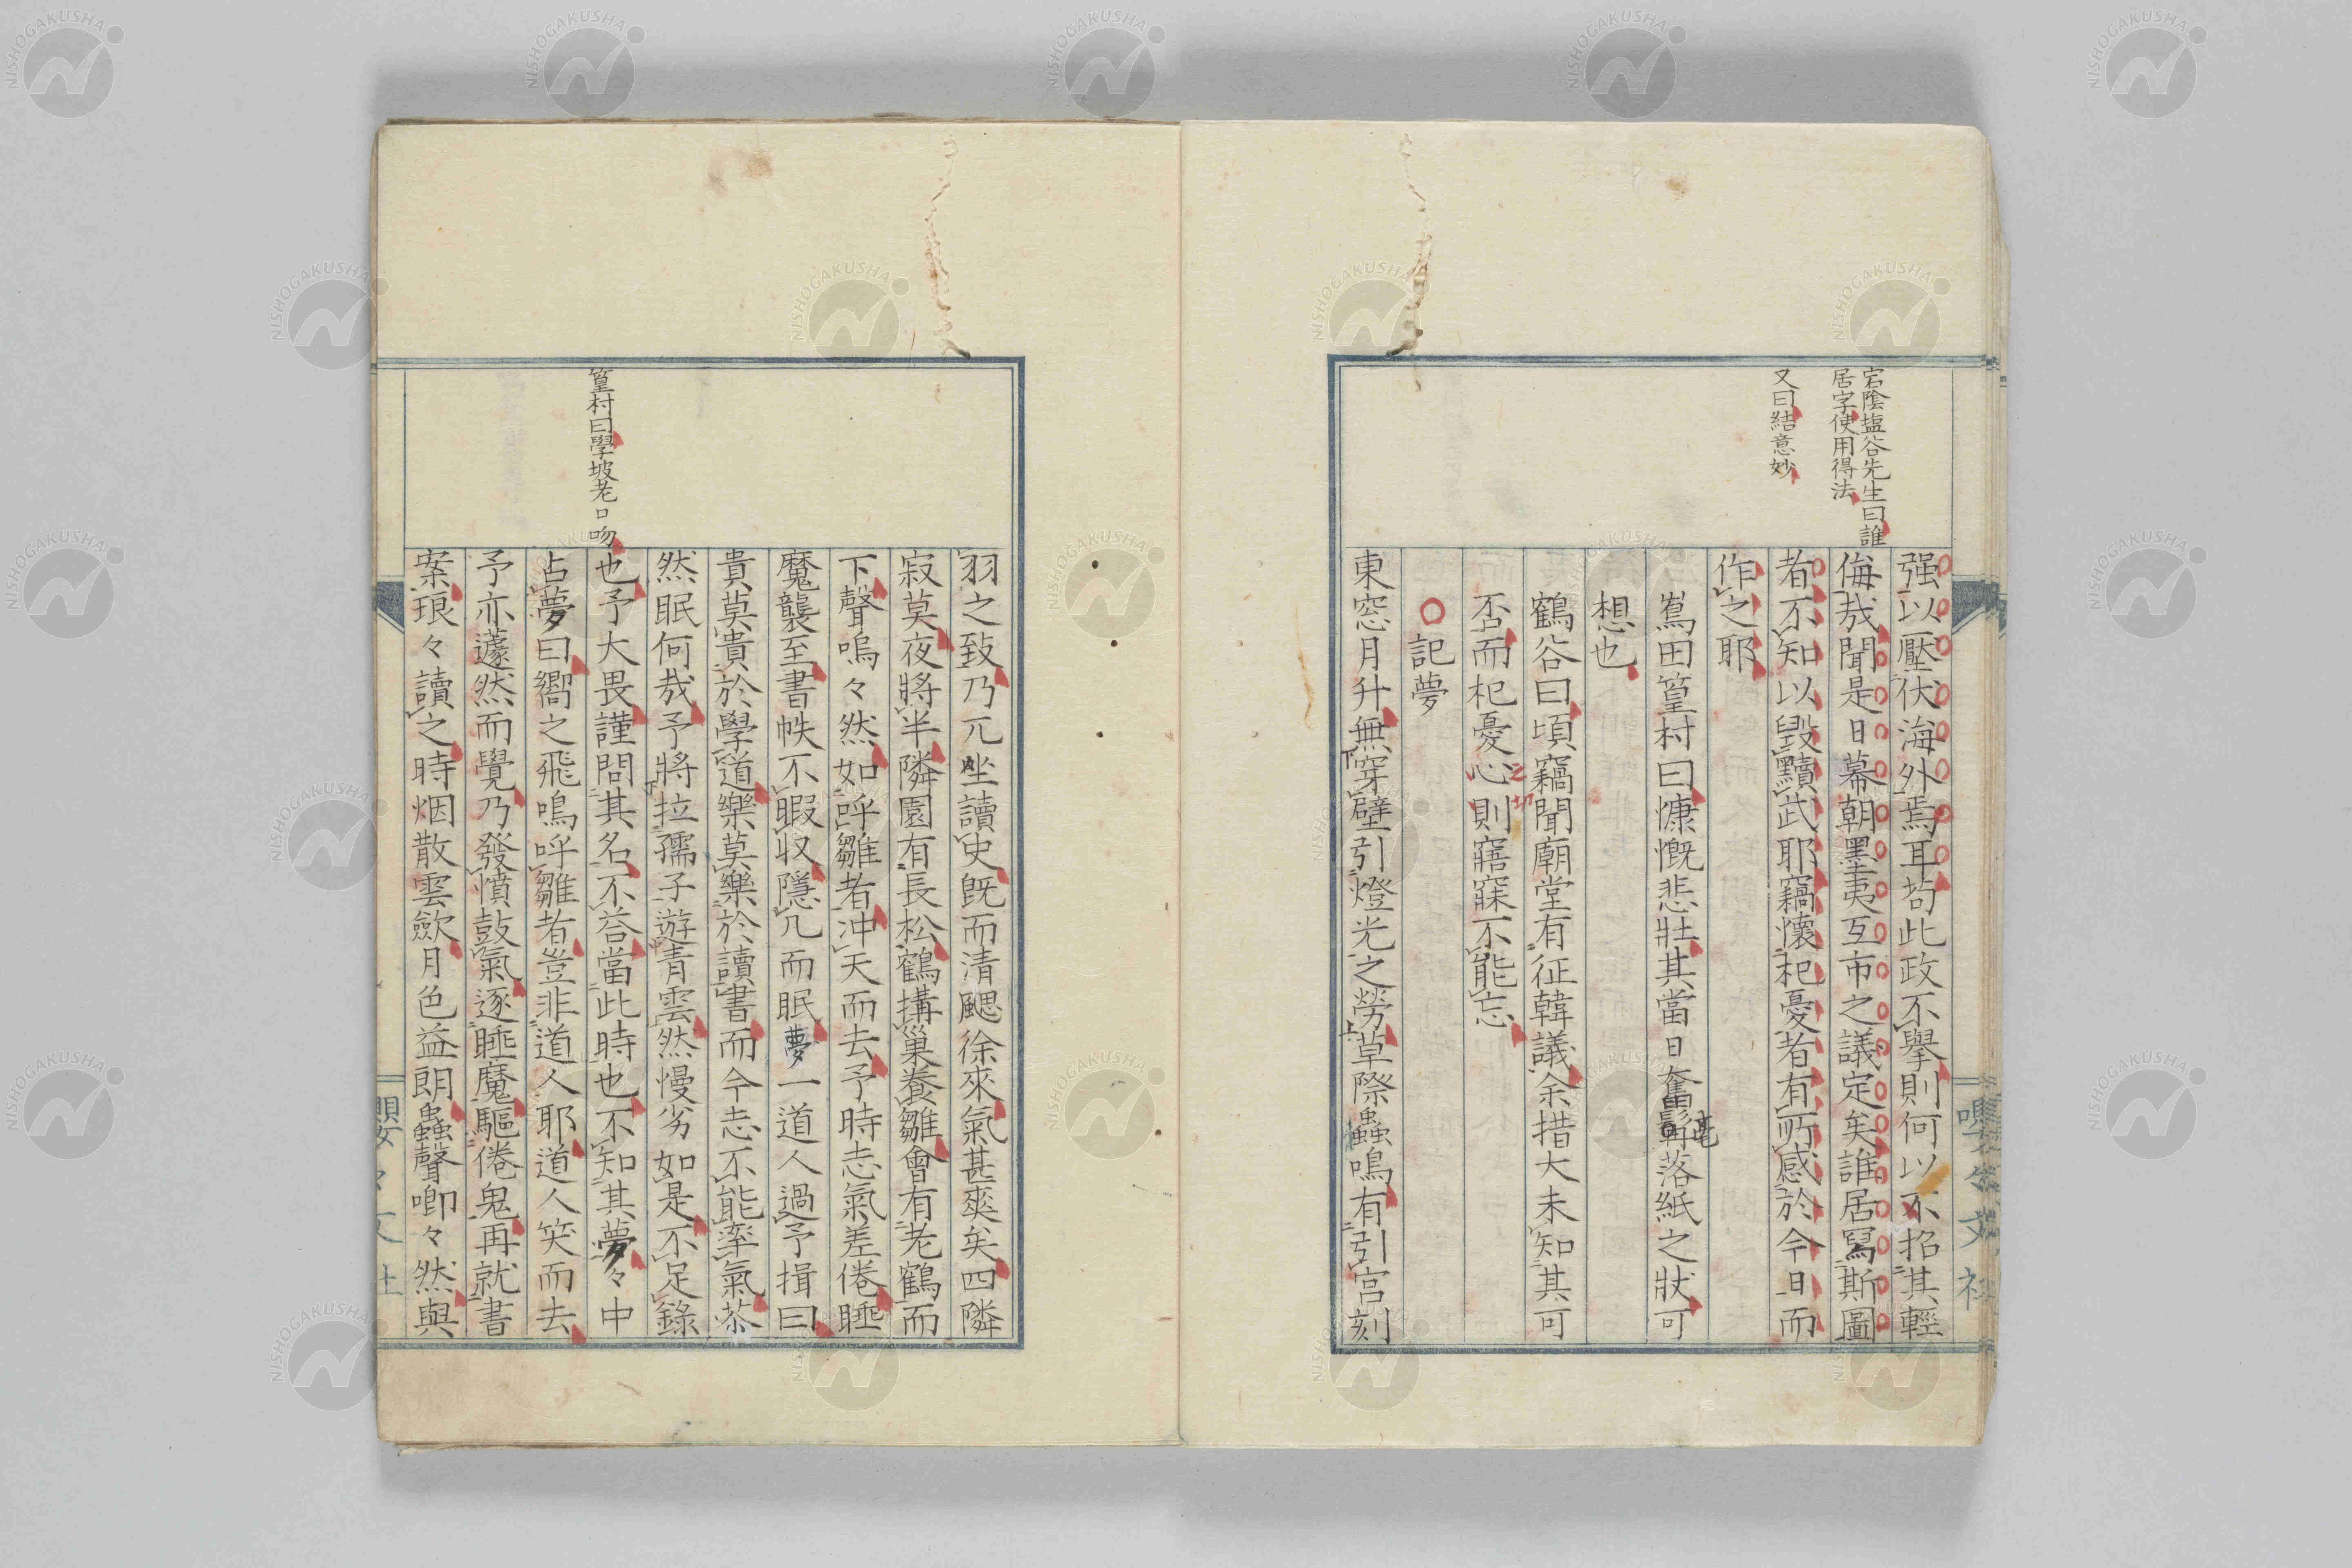 宕陰塩谷先生曰誰
居字使用得法
又曰結意妙
强以壓伏海外焉耳苟此政不擧則何以不招其輕
侮哉聞是日幕朝墨夷互市之議定矣誰居寫斯圖
者不知以毀黷武耶竊懷杞憂者有所感於今日而
作之耶
嶌田篁村曰慷慨悲壯其當日奮髯落紙之狀可
毫
想也
鶴谷曰頃竊聞廟堂有征韓議余措大未知其可
否而杞憂心則寤寐不能忘
之切
記夢
東窓月升無穿壁引燈光之勞草際蟲鳴有引宮刻
嚶々文社
篁村曰學坡老口吻
羽之致乃兀坐讀史既而清颸徐來氣甚爽矣四隣
寂莫夜將半隣園有長松鶴搆巢養雛會有老鶴而
下聲嗚々然如呼雛者冲天而去予時志氣差倦睡
魔襲至書帙不暇収隱几而眠夢一道人過予揖曰
貴莫貴於學道樂莫樂於讀書而今志不能率氣苶
然眠何哉予將拉孺子遊青雲然慢劣如是不足錄
也予大畏謹問其名不荅當此時也不知其夢々中
占夢曰嚮之飛鳴呼雛者豈非道人耶道人笑而去
予亦蘧然而覺乃發憤鼓氣逐睡魔驅倦鬼再就書
案琅々讀之時烟散雲歛月色益朗蟲聲喞々然與
嚶々文社
NISHOGAKUSHA